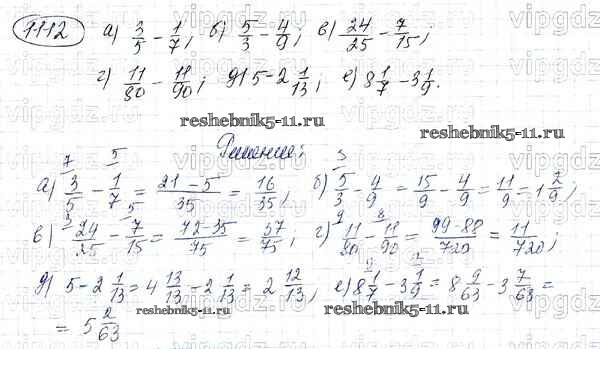 1112 а) 3/5 - 1/7; б) 5/3 - 4/9; в) 24/25 - 7/15;
г) 11/80 - 11/90; д) 5 - 2 1/13; е) 8 1/7 - 3 1/9.
reshebnik5-11.ru
reshebnik5-11.ru
Решение:
а) 3/5 - 1/7 = (21 - 5)/35 = 16/35; б) 5/3 - 4/9 = 15/9 - 4/9 = 11/9 = 1 2/9;
в) 24/25 - 7/15 = (72-35)/75 = 37/75; г) 11/80 - 11/90 = (99-88)/720 = 11/720;
д) 5 - 2 1/13 = 4 13/13 - 2 1/13 = 2 12/13; е) 8 1/7 - 3 1/9 = 8 9/63 - 3 7/63 =
= 5 2/63
reshebnik5-11.ru
reshebnik5-11.ru